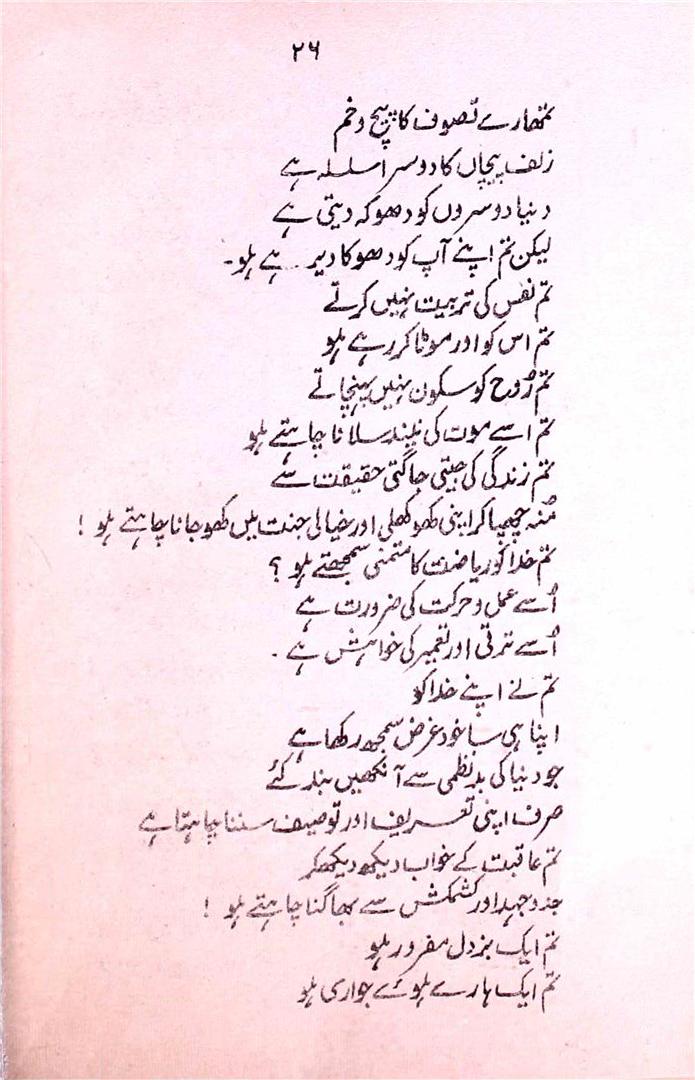 ۲۶
تمھارے تصوف کا پیچ و خم
زلف پیچاں کا دوسرا سلسلہ ہے
دنیا دوسروں کو دھوکہ دیتی ہے
لیکن تم اپنے آپ کو دھوکا دیر ہے ہو۔
تم نفس کی تربیت نہیں کرتے
تم اس کو اور موٹا کر رہے ہو
تم رُوح کو سکون نہیں پہنچاتے
تم اسے موت کی نیند سلانا چاہتے ہو
تم زندگی کی جیتی جاگتی حقیقت سے
مُنہ چھپا کر اپنی کھوکھلی اور خیالی جنت میں کھو جانا چاہتے ہو !
تم خدا کو ریاضت کا متمنی سمجھتے ہو ؟
اُسے عمل و حرکت کی ضرورت ہے
اُسے ترقی اور تعمیر کی خواہش ہے ۔
تم نے اپنے خدا کو
اپنا ہی سا خود غرض سمجھ رکھا ہے
جو دنیا کی بد نظمی سے آنکھیں بند کئے
صرف اپنی تعریف اور توصیف سننا چاہتا ہے
تم عاقبت کے خواب دیکھ دیکھ کر
جدو جہد اور کشمکش سے بھاگنا چاہتے ہو !
تم ایک بزدل مفرور ہو
تم ایک ہارے ہوئے جواری ہو